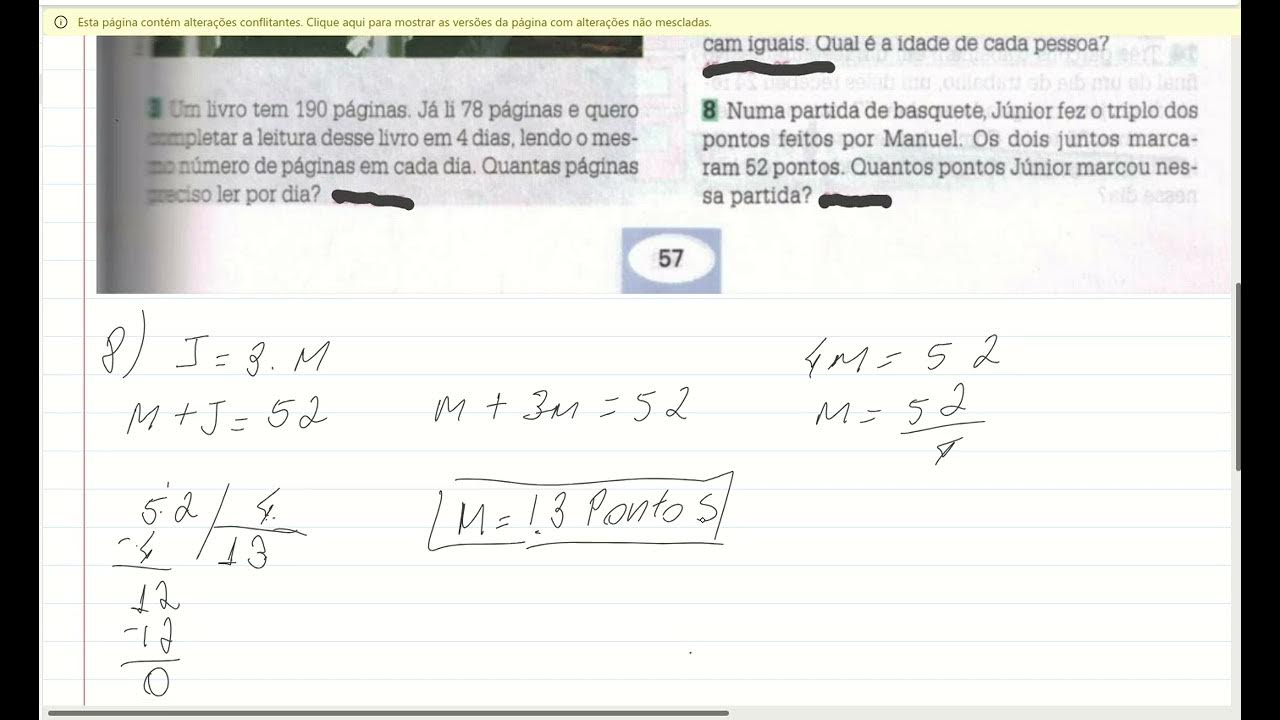 Esta página contém alterações conflitantes. Clique aqui para mostrar as versões da página com alterações não mescladas.
cam iguais. Qual é a idade de cada pessoa?
3 Um livro tem 190 páginas. Já li 78 páginas e quero
completar a leitura desse livro em 4 dias, lendo o mes-
mo número de páginas em cada dia. Quantas páginas
preciso ler por dia?
8 Numa partida de basquete, Júnior fez o triplo dos
pontos feitos por Manuel. Os dois juntos marca-
ram 52 pontos. Quantos pontos Júnior marcou nes-
sa partida?
57
8) J = 3. M
M + J = 52
M + 3M = 52
4M = 52
M = 52
4
52 / 4
-4 13
12
-12
0
M = 13 Pontos